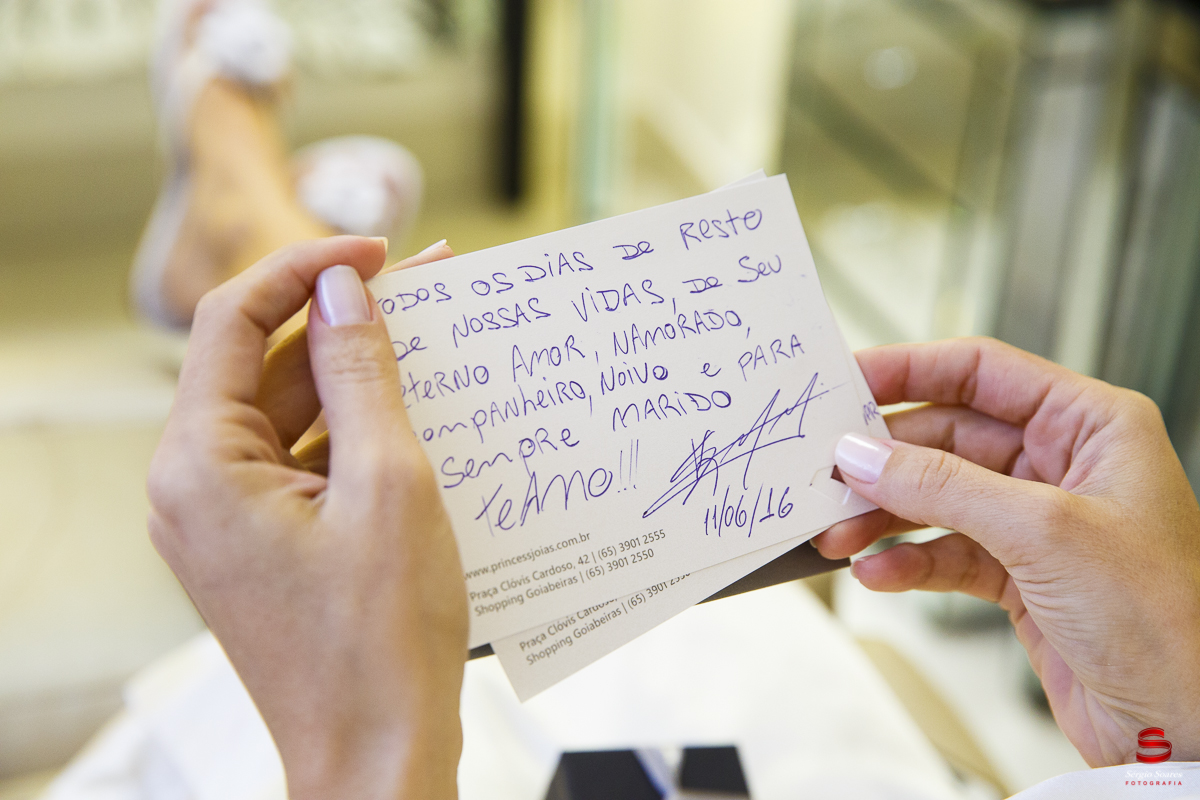 TODOS OS DIAS DE RESTO
DE NOSSAS VIDAS, DE SEU
ETERNO AMOR, NAMORADO,
COMPANHEIRO, NOIVO E PARA
SEMPRE MARIDO
TE AMO!!!
11/06/16
www.princessjoias.com.br
Praça Clóvis Cardoso, 42 | (65) 3901 2555
Shopping Goiabeiras | (65) 3901 2550
Praça Clóvis Cardoso,
Shopping Goiabeiras | (65) 3901 2550
Sérgio Soares
FOTOGRAFIA